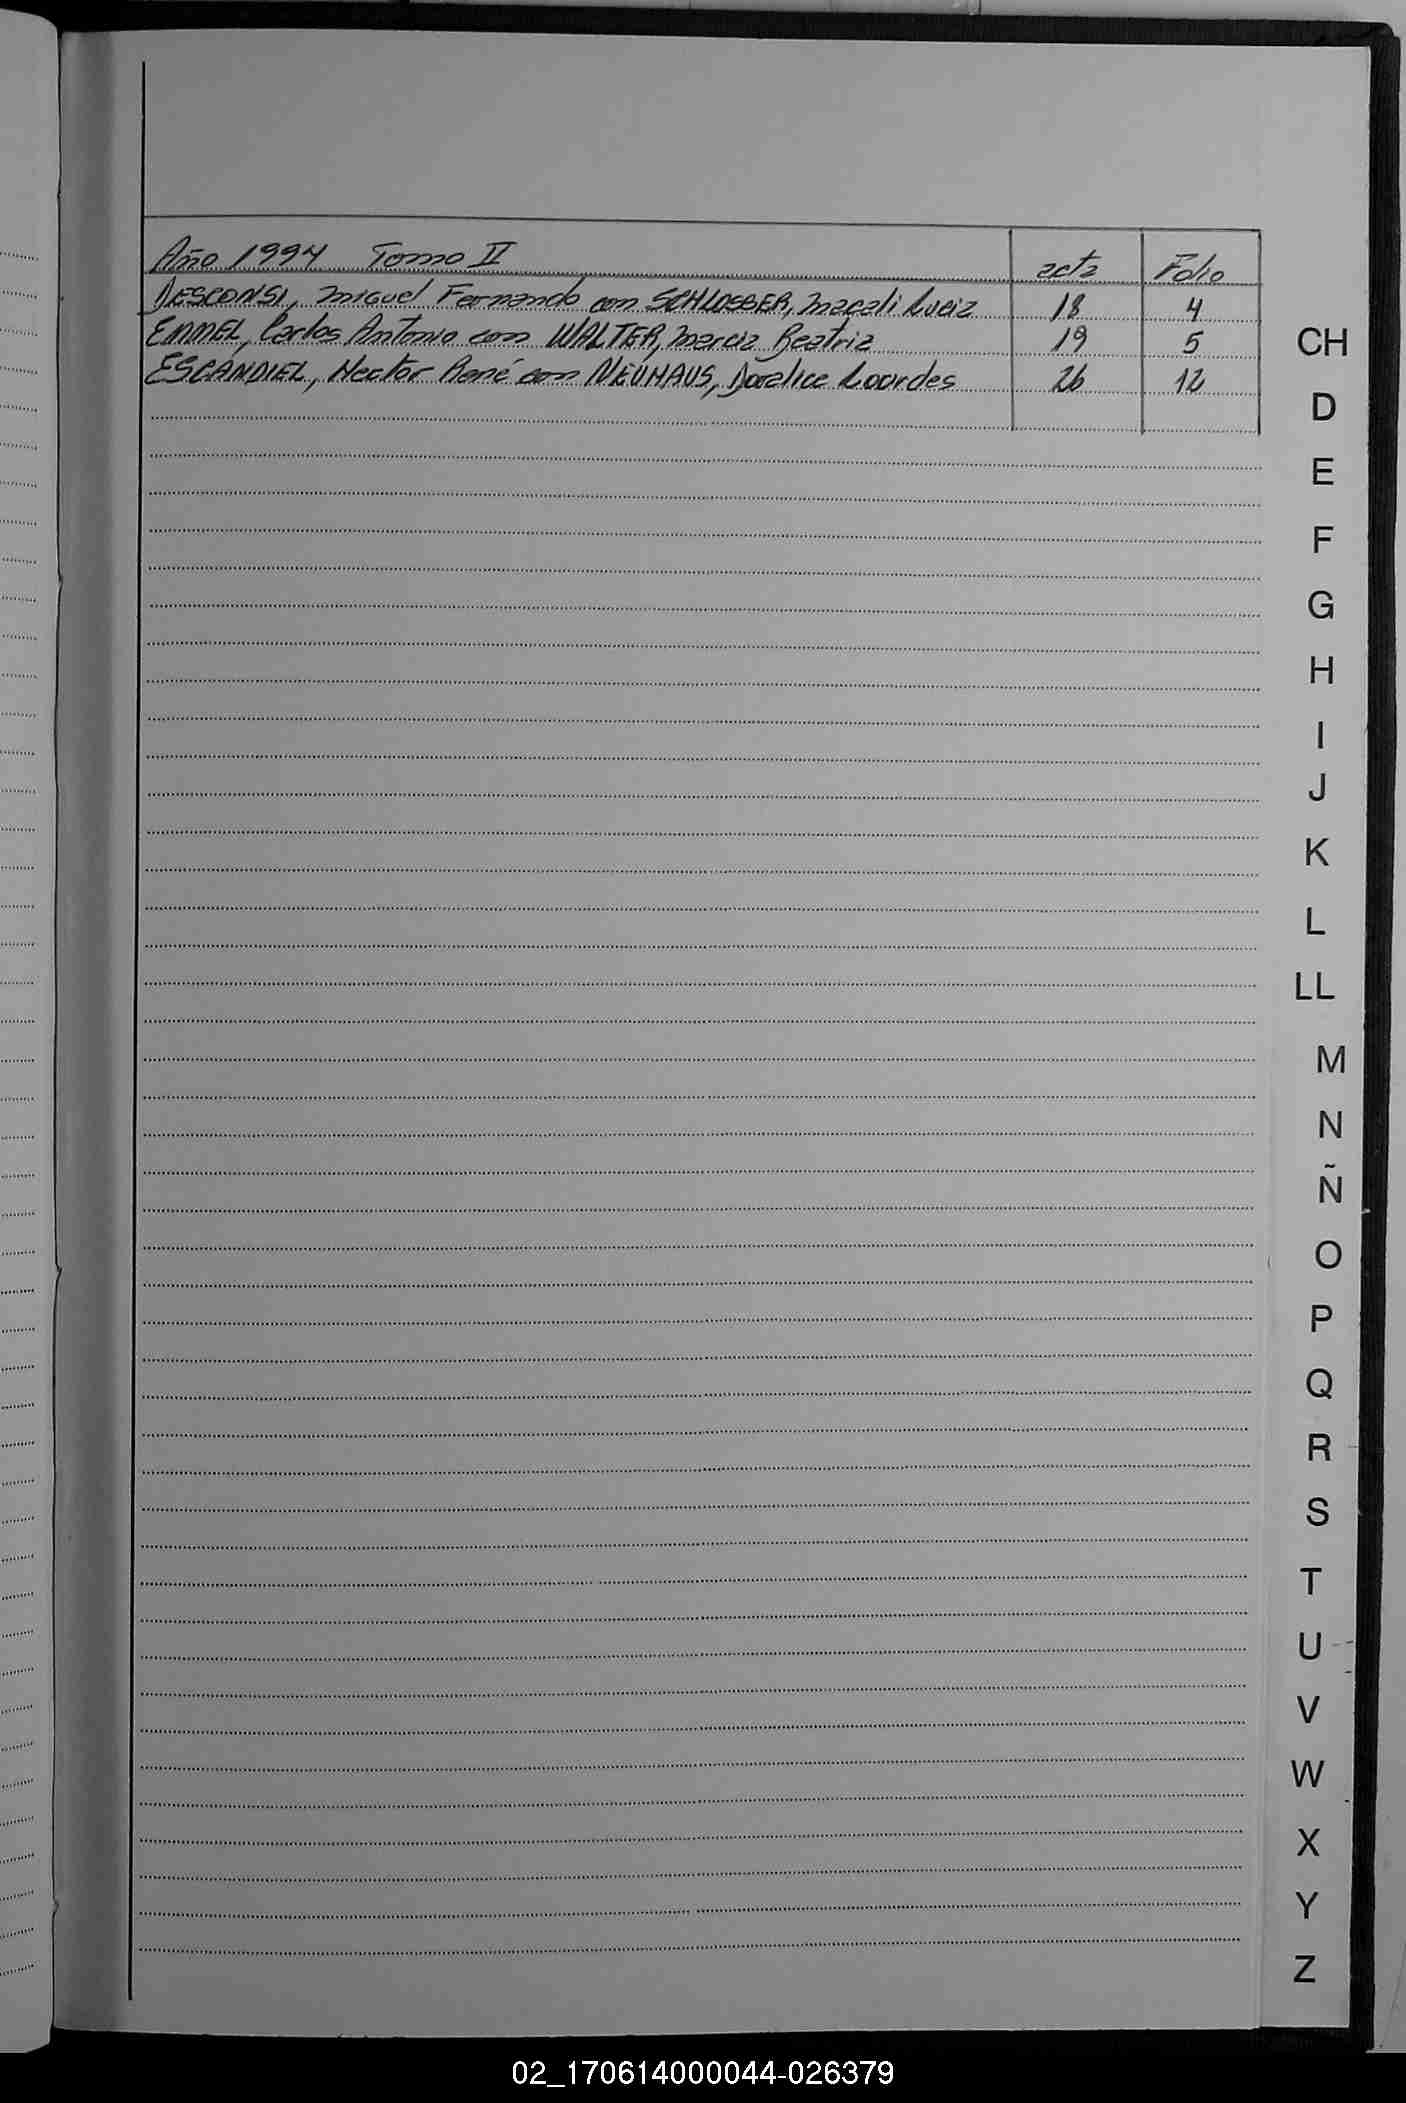 Año 1994 Tomo II acta Folio
DESCONSI, Miguel Fernando con SCHLOSSER, Magali Lucia 18 4
EMMEL, Carlos Antonio con WALTER, Marcia Beatriz 19 5
ESCANDIEL, Hector René con NEUHAUS, Doralice Lourdes 26 12
CH
D
E
F
G
H
I
J
K
L
LL
M
N
Ñ
O
P
Q
R
S
T
U
V
W
X
Y
Z
02_170614000044-026379